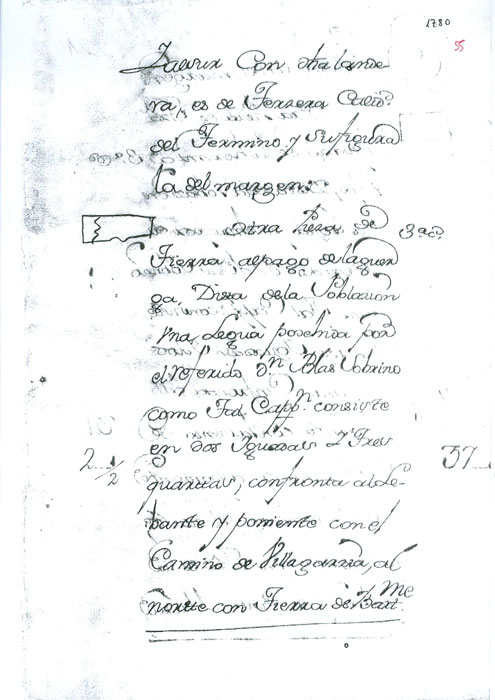 1780
55
con otra tierra
ra, es de Tercera Calid.
del Termino y su figura
la del margen.
Otra Pieza de
Tierra al pago de laguen
ga, Dista de la Poblacion
Una Legua posehida por
el referido Dn. Blas Sobrino
como tal Cappn. consiste
en dos Yguadas y Tres
2 1/2
37
quartas, confronta al Le-
bante y poniente con el
Camino de Villagarzia, al
Norte con Tierra de Bart.me